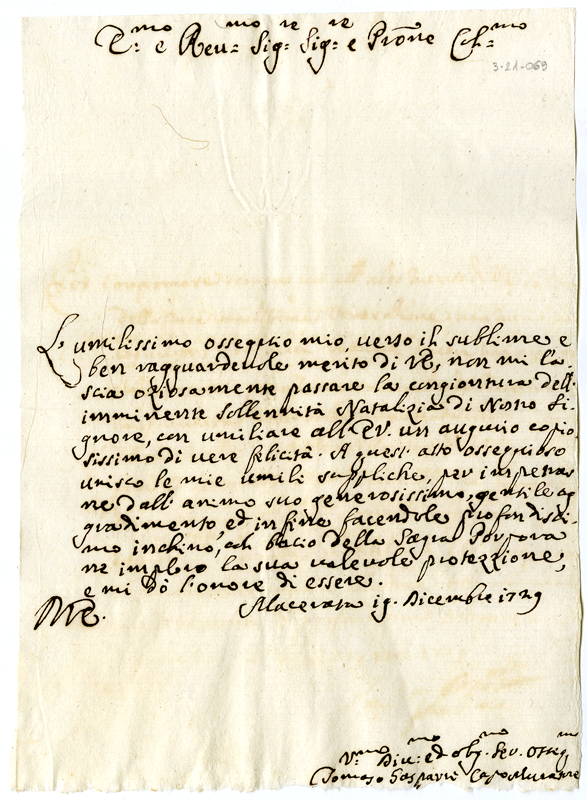 E.mo e Reu.mo Sig.re Sig.re e Prone Col.mo
3-21-069
L'umilissimo ossequio mio, verso il sublime e
ben ragguardevole merito di VE, non mi la-
scia oziosamente passare la congiontura dell'
imminente sollennità Natalizia di Nostro Si-
gnore, con umiliare all'EV. un augurio copio-
sissimo di vere felicità. A quest'atto ossequioso
unisco le mie umili suppliche, per impetrar-
ne dall'animo suo generosissimo, gentile ag-
gradimento, ed in fine facendole profondissi-
mo inchino, col bacio della Sagra Porpora
ne imploro la sua valevole protezzione,
e mi dò l'onore di essere.
Macerata 19. Dicembre 1729
V.mo Diu.mo ed obg.mo Seu. Osseq.m
Tomaso Gasparri